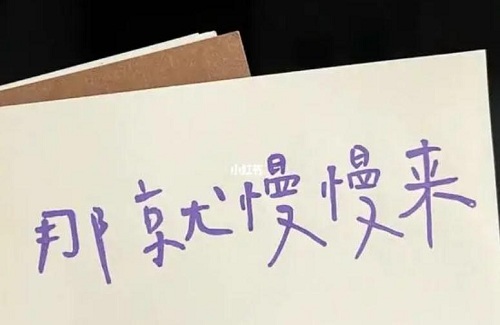 小红书
那就慢慢来